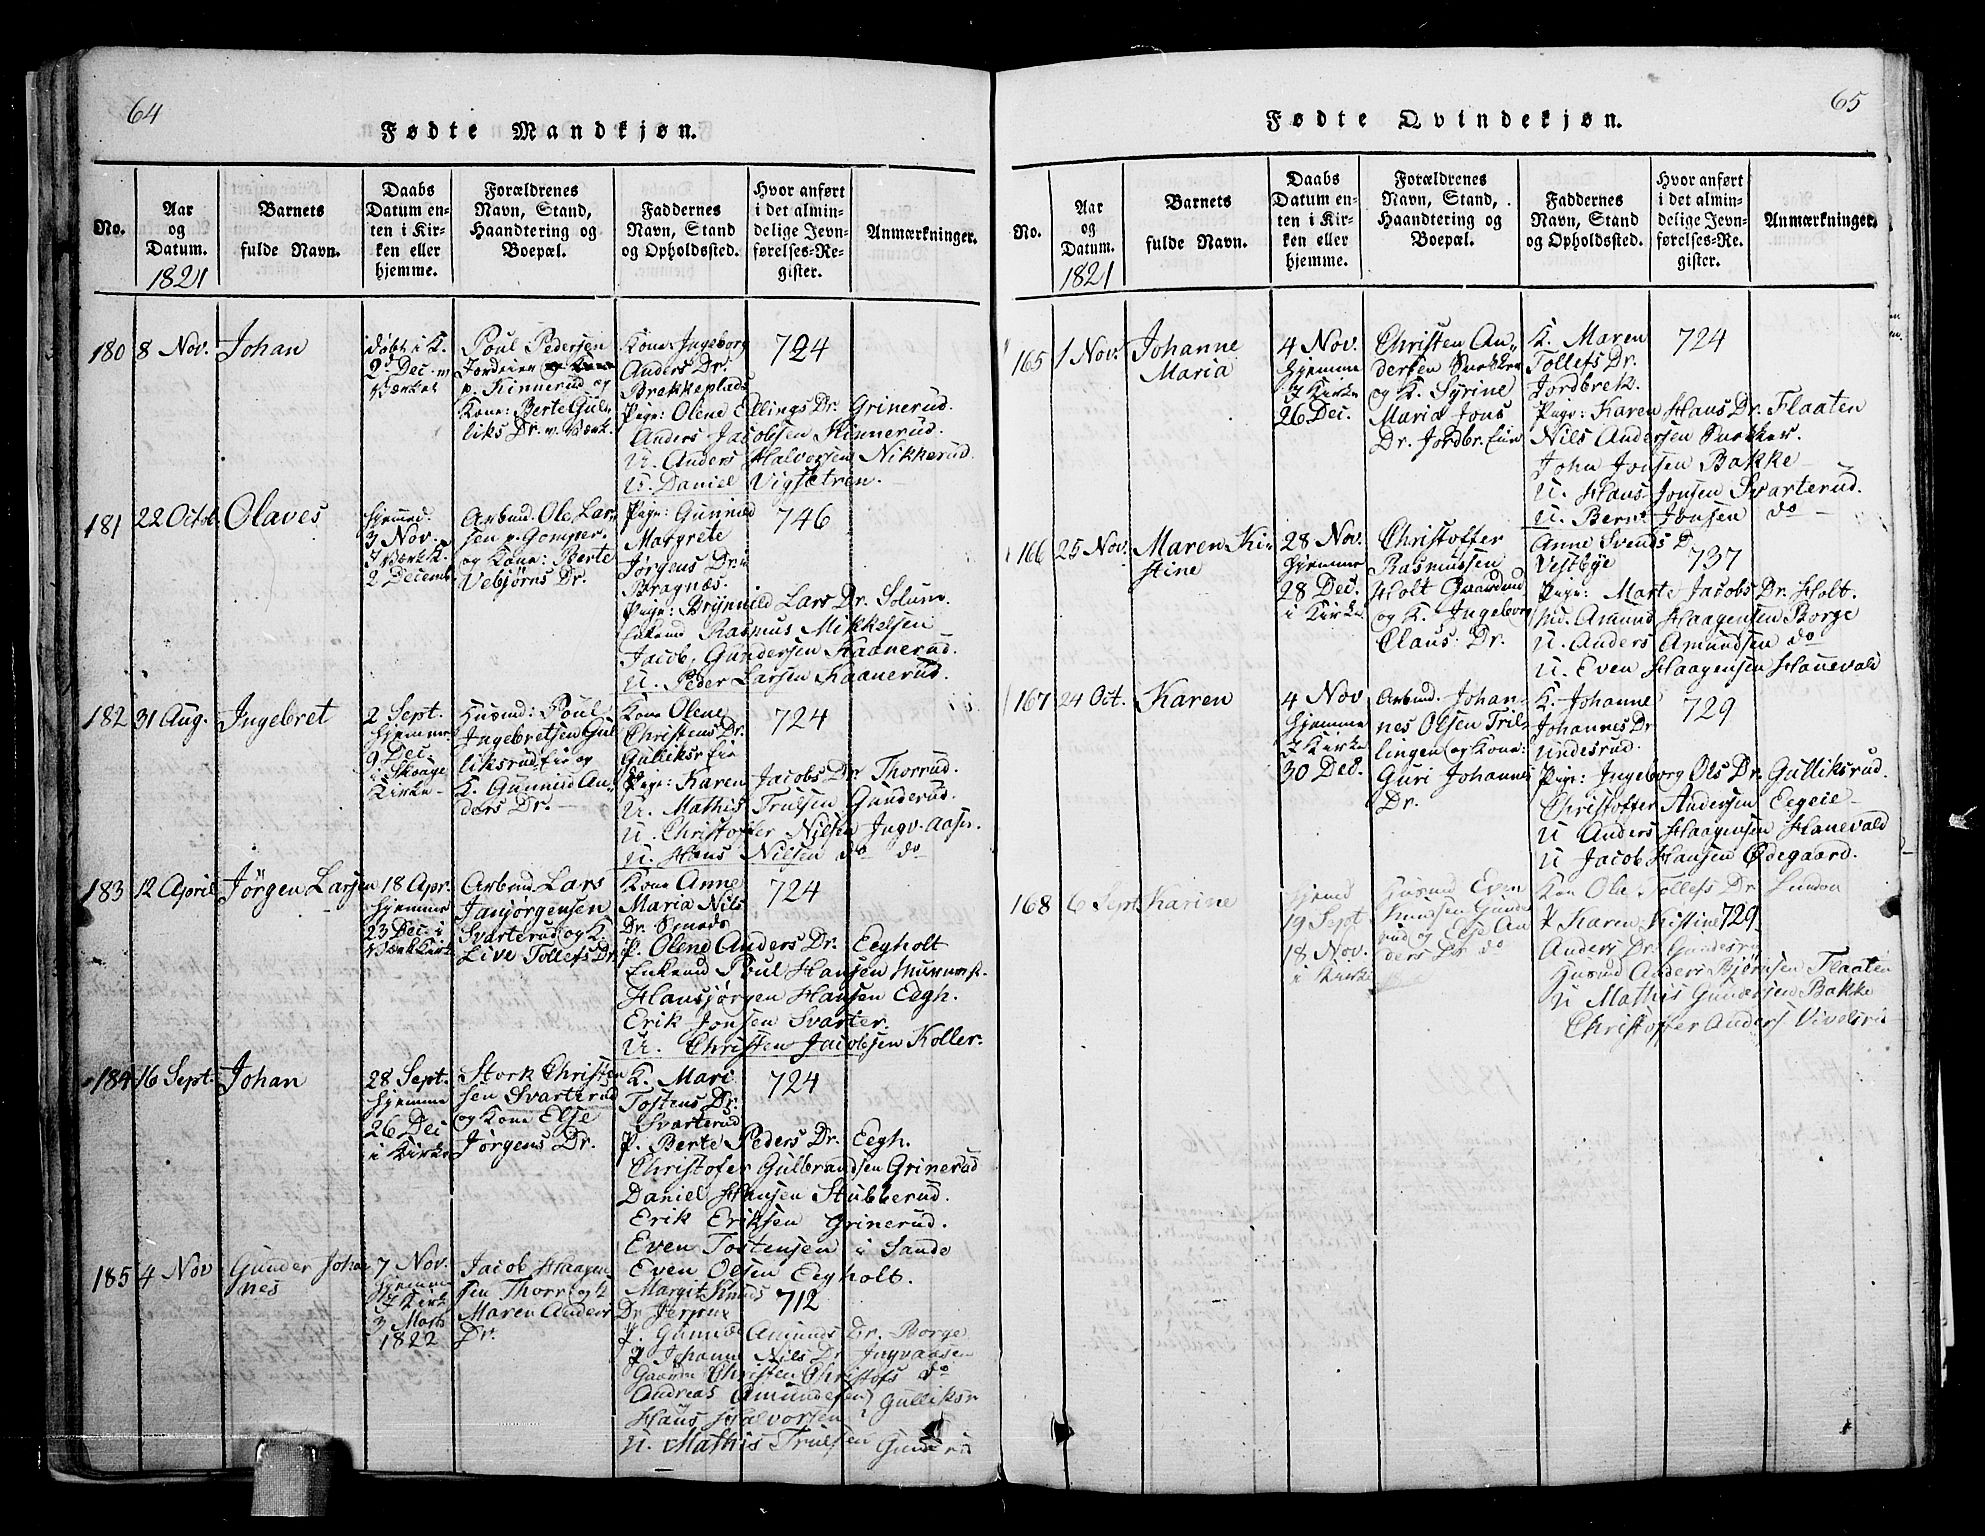 64
Fødte Mandkjøn.
No.
Aar og Datum.
1821
Barnets fulde Navn.
Daabs Datum enten i Kirken eller hjemme.
Forældrenes Navn, Stand, Haandtering og Boepæl.
Faddernes Navn, Stand og Opholdssted.
Hvor anført i det almindelige Jevnførelses-Register.
Anmærkninger.
180
8 Nov.
Johan
døbt i K.
2 Dec. v.
Værket
Poul Pedersen
Jordeier
p. Kinnerud og
Kone: Berte Gul-
liks Dr. v. Værk.
Kone Ingeborg
Anders Dr.
Brekkeplads
Pige: Olene Ellings Dr. Grinerud.
Anders Jacobsen Kinnerud.
U. Anders Halvorsen Nikkerud.
U. Daniel Vigsetren.
724
181
22 Octob.
Olaves
hjemed.
3 Nov.
I Værk K.
2 Decemb.
Arbmd. Ole Lar-
sen p. Gomper.
og Kone: Berte
Vebjørns Dr.
Pige: Gunnild
Margrete
Jørgens Dr.
Bragnæs.
Pige: Brynnild Lars Dr. Solum.
Enkmd Rasmus Mikkelsen
Jacob Gundersen Kaanerud.
U. Peder Larsen Kaanerud.
746
182
31 Aug.
Ingebret
2 Sept.
hjemme
9 Dec.
i Skoge
Kirke
Husmd: Poul
Ingebretsen Gul
liksrud eie og
K. Gunnild An-
ders Dr.
Kone Olene
Christens Dr.
Guliksr. eie
Pige: Karen Jacobs Dr. Thorrud.
U. Mathis Trulsen Gunderud.
U. Christoffer Nilsen Ingv. aasen.
U. Hans Nilsen do do
724
183
12 April
Jørgen Larsen
18 Apr.
hjemme
23 Dec. i
Værk Kirk
Arbmd Lars
Jansjørgensen
Svarterud og K.
Live Tollefs Dr.
Kone Anne
Maria Nils
Dr. Smeds
P. Olene Anders Dr. Eegholt
Enkmd Poul Hansen Murmest.
Hansjørgen Hansen Eegh.
Erik Jonsen Svarter.
U. Christen Jacobsen Koller.
724
184
16 Sept.
Johan
28 Sept.
hjemme
26 Dec
i Kirke
Stork Christen
sen Svarterud
og Kone Else
Jørgens Dr.
K. Mari
Tostens Dr.
Svarterud
P. Berte Peders Dr. Eegh.
Christofer Gulbrandsen Grinerud
Daniel Hansen Stubberud.
Erik Eriksen Grinerud.
Even Tostensen i Sande
Even Olsen Eegholt.
724
185
4 Nov
Gunder Johan
nes
7 Nov.
hjemme
I Kirk
3 Marts
1822
Jacob Haagen
sen Thorr. og K
Maren Anders
Dr.
Margit Knuds
Dr
P. Gunnild Amunds Dr. Borge
P Johanne Nils Dr Ingvaasen
Gaarm Christen Christofs do
Andreas Amundsen Gulliksr
og
Hans Halvorsen
U. Mathis Trulsen Gunderud
712
65
Fødte Qvindekjøn.
No.
Aar og Datum.
1821
Barnets fulde Navn.
Daabs Datum enten i Kirken eller hjemme.
Forældrenes Navn, Stand, Haandtering og Boepæl.
Faddernes Navn, Stand og Opholdssted.
Hvor anført i det almindelige Jevnførelses-Re. gister.
Anmærkninger.
165
1 Nov.
Johanne
Maria
4 Nov.
hjemme
I Kirke
26 Dec.
Christen An-
dersen Snekker
og K. Syrine
Maria Jons
Dr. Jordbr. Eie
K. Maren
Tollefs Dr.
Jordbrek.
Pige: Karen Hans Dr. Flaaten
Nils Andersen Snekker.
John Jonsen Bakke
U. Hans Jonsen Svarterud.
U. Bernt Jonsen do
724
166
25 Nov.
Maren Ki-
stine
28 Nov.
hjemme
28 Dec.
i Kirke
Christoffer
Rasmussen
Holt Gaardmd
og K. Ingeborg
Claus. Dr.
Anne Svends D
Vestbye
Pige: Marte Jacobs Dr. Holt.
U. Amund Haagensen Borge
U. Anders Amundsen do
U. Even Haagensen Hanevald
737
167
24 Oct.
Karen
4 Nov
hjemme
I Kirke
30 Dec.
Arbmd. Johan-
nes Olsen Tril-
lingen og Kone:
Guri Johannes
Dr.
K. Johanne
Johannes Dr
Undesrud.
Pige: Ingeborg Ols Dr. Gulliksrud.
Christoffer Andersen Eegeie
U Anders Haagensen Hanevald
U Jacob Hansen Ødegaard.
729
168
6 Sept
Karine
hjemd
19 Sept
18 Nov.
i Kirke
Husmd Even
Knudsen Gunde
rud og Else An
ders Dr do
Kon Ole Tollefs Dr Lundon
P Karen Kistine
Anders Dr Gunderu
Husmd Anders Bjørnsen Flaaten
U Mathis Gundersen Bakke
Christoffer Anders
729